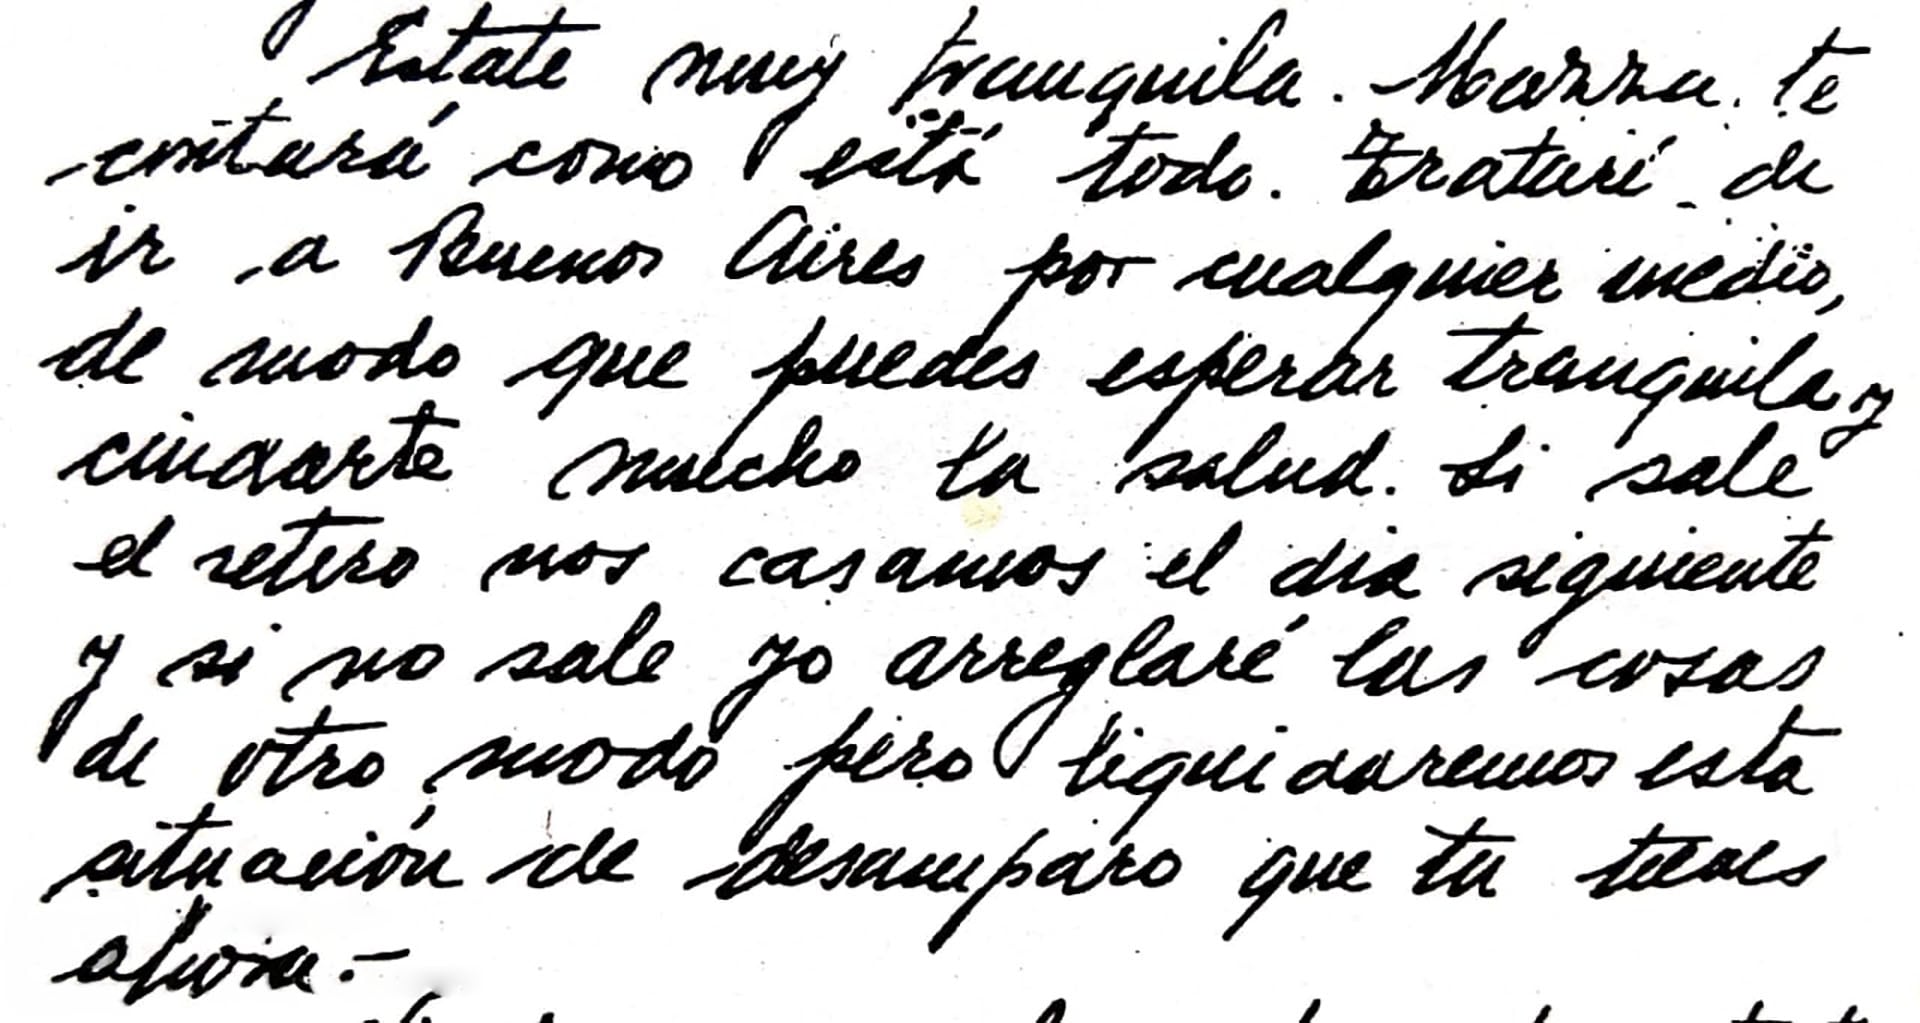 Estate muy tranquila. Mazza te
contará como está todo. Trataré de
ir a Buenos Aires por cualquier medio,
de modo que puedes esperar tranquila y
cuidarte mucho la salud. Si sale
el retiro nos casamos el dia siguiente
y si no sale yo arreglaré las cosas
de otro modo pero liquidaremos esta
situación de desamparo que tu tienes
ahora.-